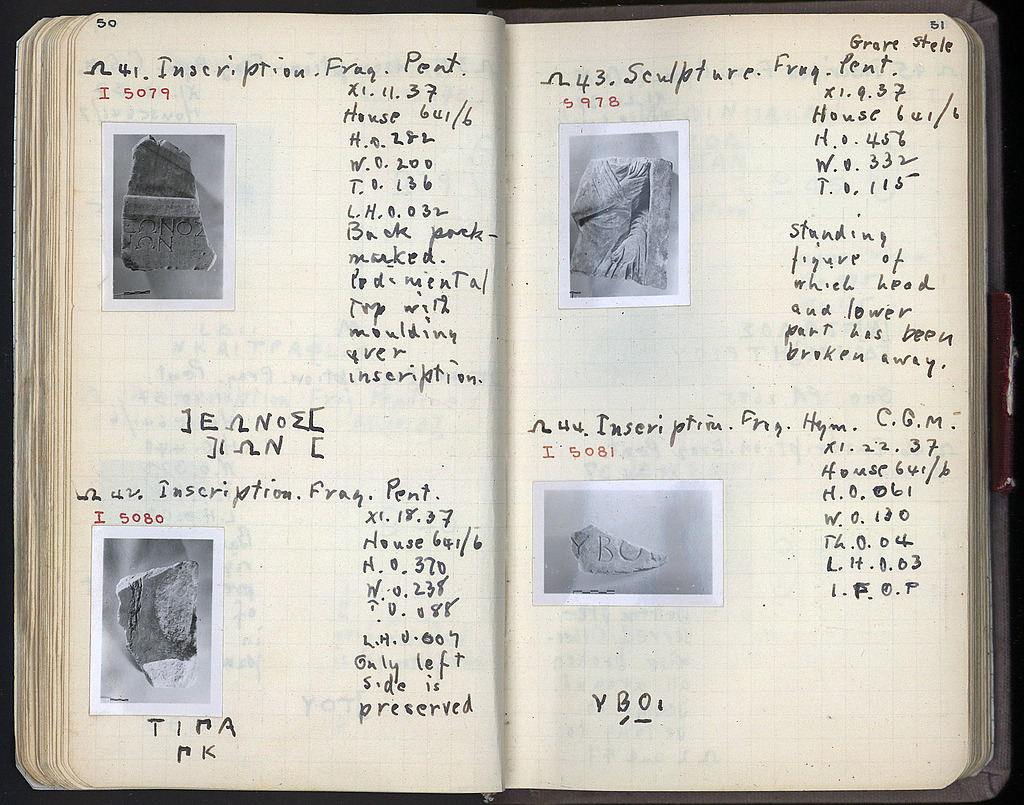 50
Ω 41. Inscription. Frag. Pent.
I 5079
XI.11.37
House 641/6
H.0.282
W.0.200
T.0.136
L.H.0.032
Back pock-
marked.
Pedimental
top with
moulding
over
inscription.
ΕΩΝΟΣ
ΙΩΝ
]ΕΩΝΟΣ[
]ΙΩΝ [
Ω 42. Inscription. Frag. Pent.
I 5080
XI.18.37
House 641/6
H.0.370
W.0.238
T.0.088
L.H.0.007
Only left
side is
preserved
ΤΙΜΑ
ΠΚ
51
Grave Stele
Ω 43. Sculpture. Frag. Pent.
S 978
XI.9.37
House 641/6
H.0.456
W.0.332
T.0.115
Standing
figure of
which head
and lower
part has been
broken away.
Ω 44. Inscription. Frag. Hym. C.G.M.
I 5081
XI.22.37
House 641/6
H.0.061
W.0.130
Th.0.04
L.H.0.03
I.F.O.P
ΥΒΟ
ΥΒΟΙ